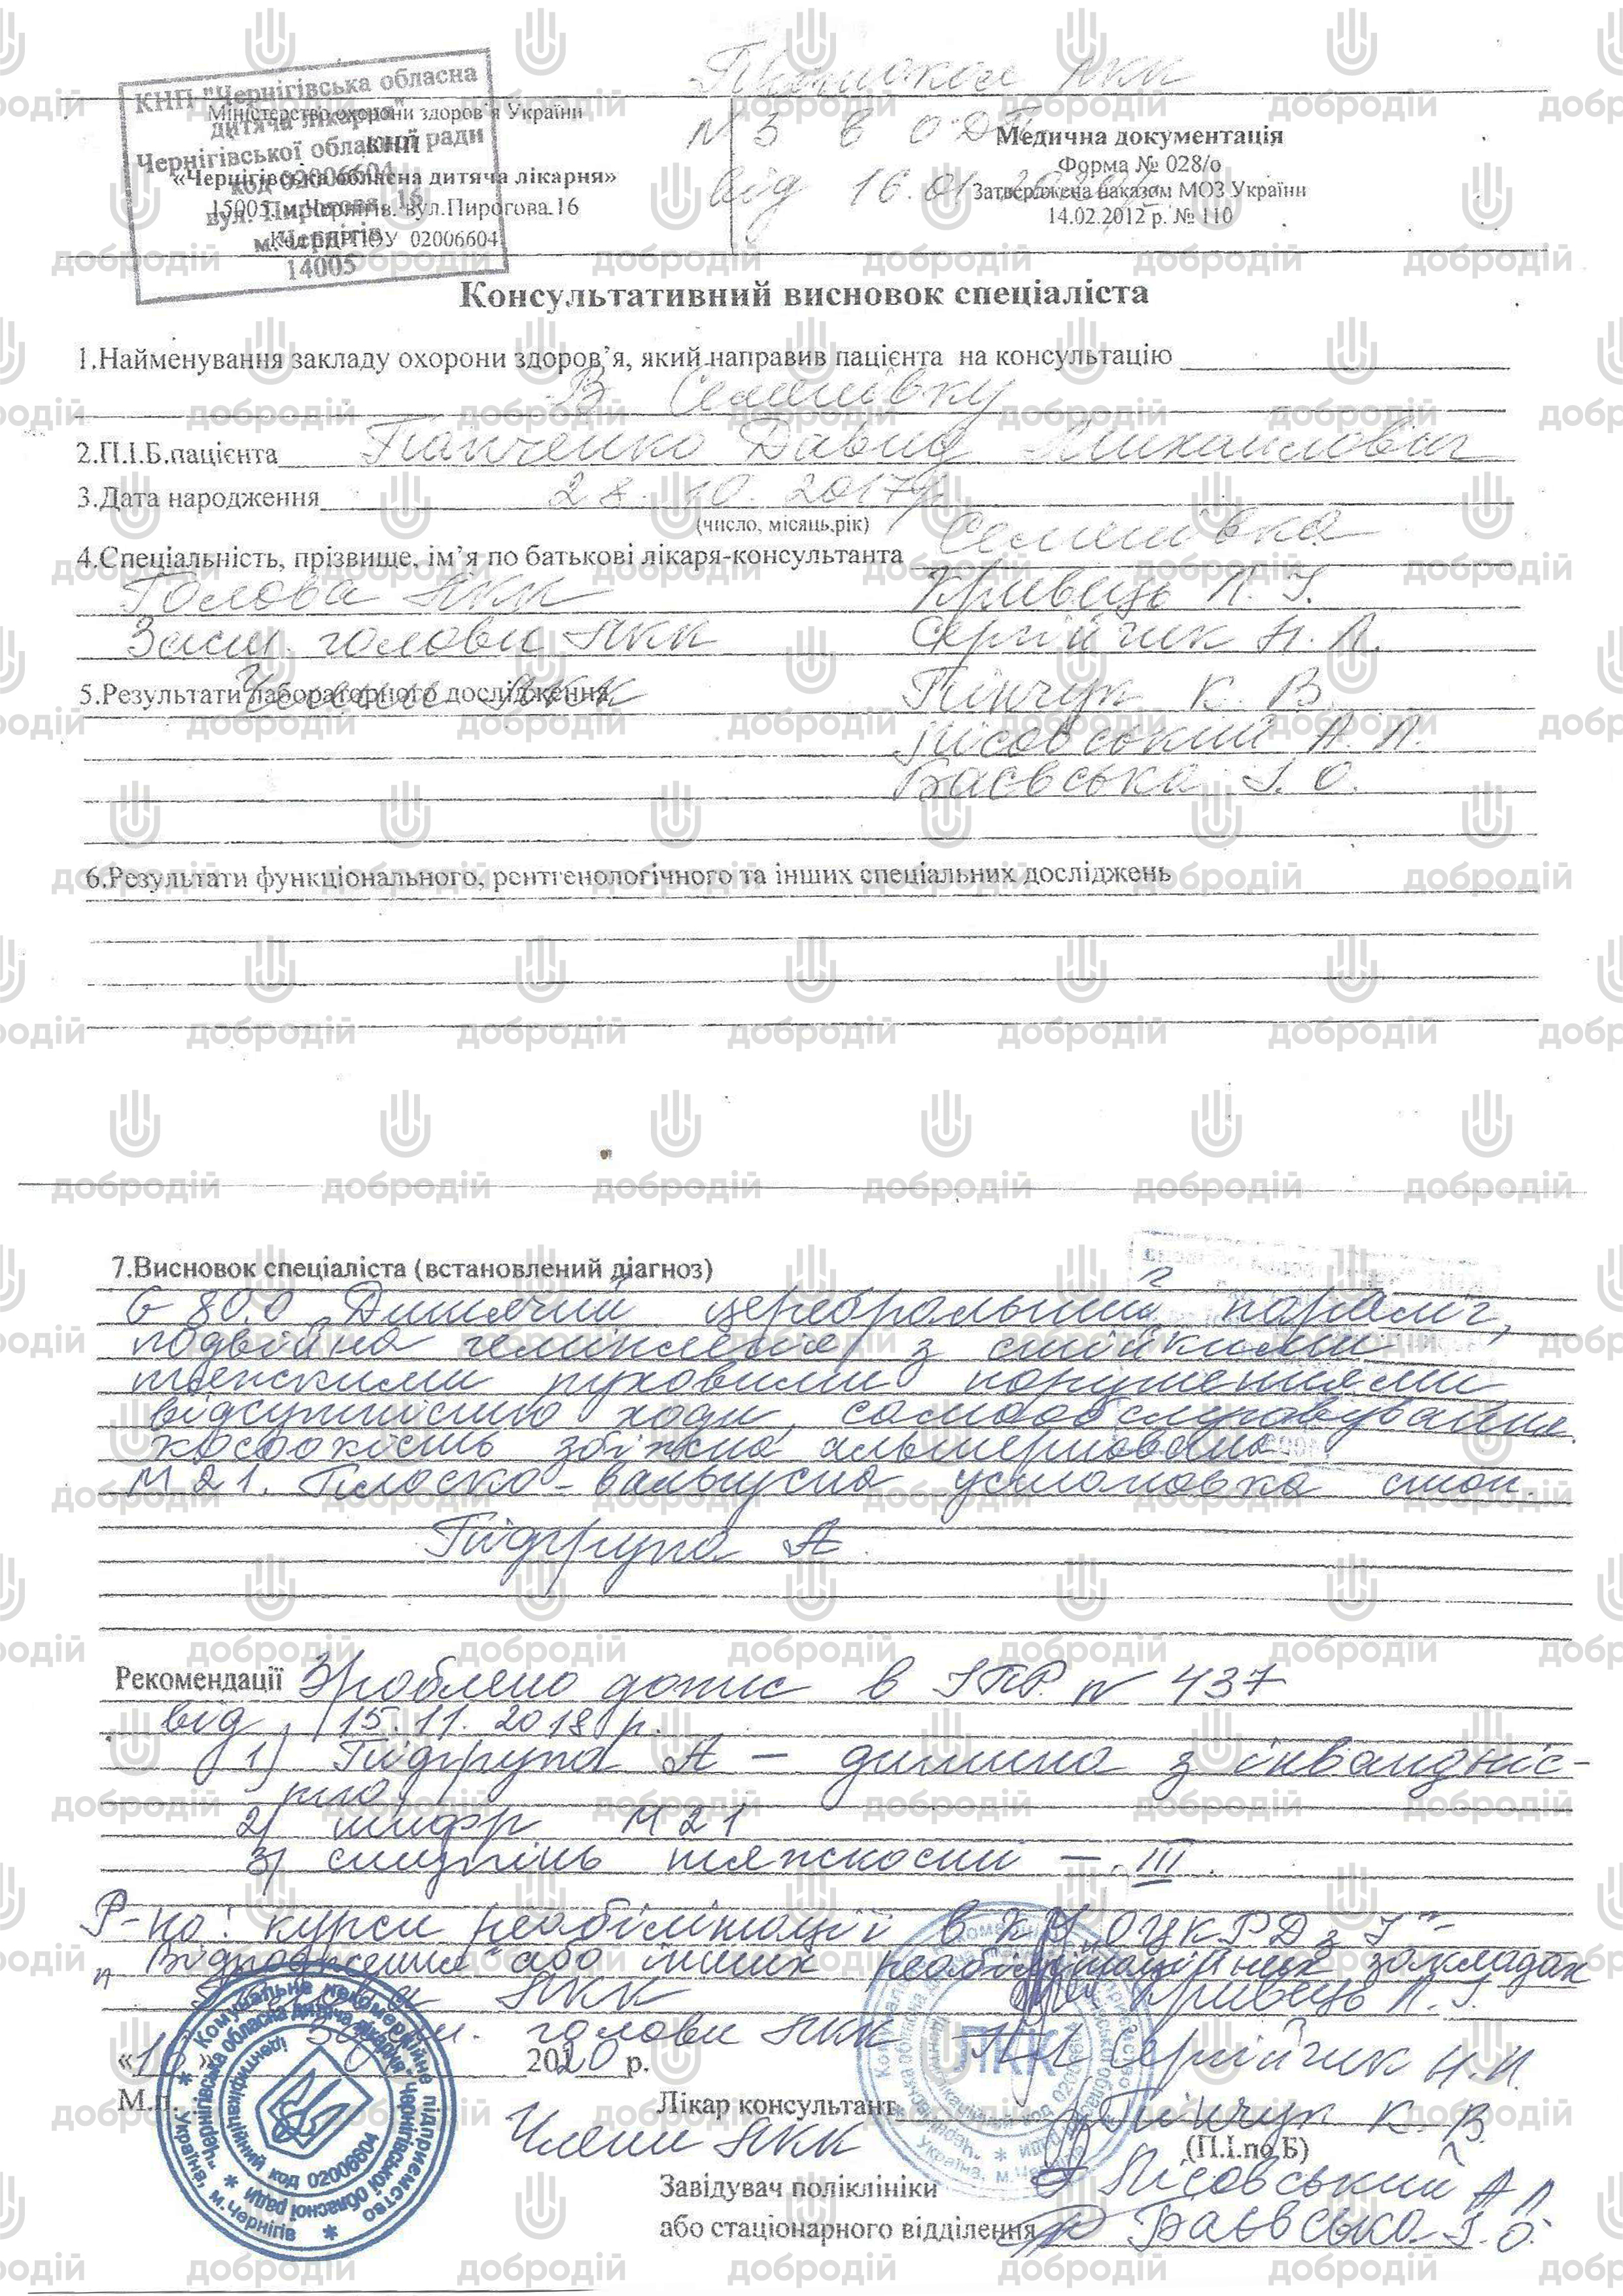 Протокол ЛКК
КНП "Чернігівська обласна
дитяча лікарня"
Чернігівської обласної ради
код 02006604
вул. Пирогова, 16
м. Чернігів
14005
Міністерство охорони здоров'я України
КНП
«Чернігівська обласна дитяча лікарня»
15005 м. Чернігів. вул.Пирогова.16
Код ЄДРПОУ 02006604
N 3 в ОДЛ
від 16.01.
Медична документація
Форма № 028/о
Затверджена наказом МОЗ України
14.02.2012 р. № 110
Консультативний висновок спеціаліста
1.Найменування закладу охорони здоров'я, який направив пацієнта на консультацію
В Семенівку
2.П.І.Б.пацієнта Панченко Давид Михайлович
3.Дата народження 28.10.2017р
(число, місяць,рік)
Семенівка
4.Спеціальність, прізвище, ім'я по батькові лікаря-консультанта
Голова ЛКК Кривець Л. І.
Заст. голови ЛКК Сергійчик Н. Л.
5.Результати лабораторного дослідження
Члени ЛКК Пінчук К. В.
Лісовський А. Л.
Баєвська І. О.
6.Результати функціонального, рентгенологічного та інших спеціальних досліджень
7.Висновок спеціаліста (встановлений діагноз)
G 80.0 Дитячий церебральний параліч,
подвійна геміплегія з стійкими
тяжкими руховими порушеннями
відсутністю ходи, самообслуговування.
косоокість збіжна альтернована
М 21. Плоско-вальгусна установка стоп.
Підгрупа А.
Рекомендації Зроблено допис в ІПР N 437
від 15.11.2018р.
1) Підгрупа А – дитина з інвалідніс-
тю
2) шифр М 21
3) ступінь тяжкості – III.
Р-но: курси реабілітації в КУ ОЦКРДзІ
"Відродження" або інших реабілітаційних закладах
Голова ЛКК Кривець Л. І.
Заст. голови ЛКК Сергійчик Н. Л.
«16» 2020 р.
М.п.
Лікар консультант Пінчук К. В.
(П.І.по Б)
Члени ЛКК
Завідувач поліклініки Лісовський А Л
або стаціонарного відділення Баєвська І. О.
Комунальне некомерційне підприємство
"Чернігівська обласна дитяча лікарня" Чернігівської обласної ради
Ідентифікаційний код 02006604
Україна, м. Чернігів
ЛКК
добродій